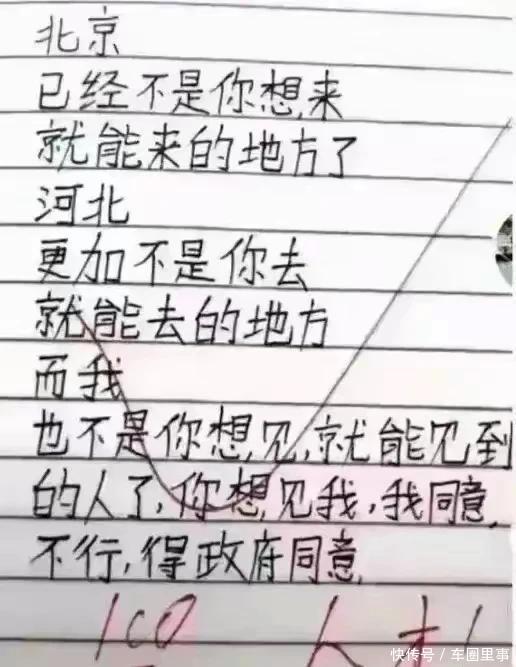 北京
已经不是你想来
就能来的地方了
河北
更加不是你去
就能去的地方
而我
也不是你想见,就能见到
的人了,你想见我,我同意
不行,得政府同意
100 人才!
快传号/车圈里事